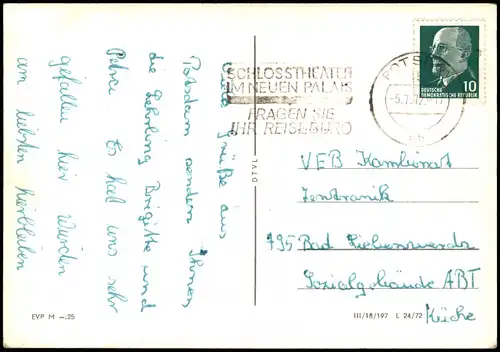 viele Grüße aus
Potsdam senden Ihnen
die Lehrling Brigitte und
Petra. Es hat uns sehr
gefallen hier. Würden
am liebsten hierbleiben
EVP M –.25
SCHLOSSTHEATER
IM NEUEN PALAIS
FRAGEN SIE
IHR REISEBÜRO
POTSDAM
10
DEUTSCHE
DEMOKRATISCHE REPUBLIK
VEB Kombinat
Zentronik
795 Bad Liebenwerda
Sozialgebäude ABT
Küche
III/18/197 L 24/72